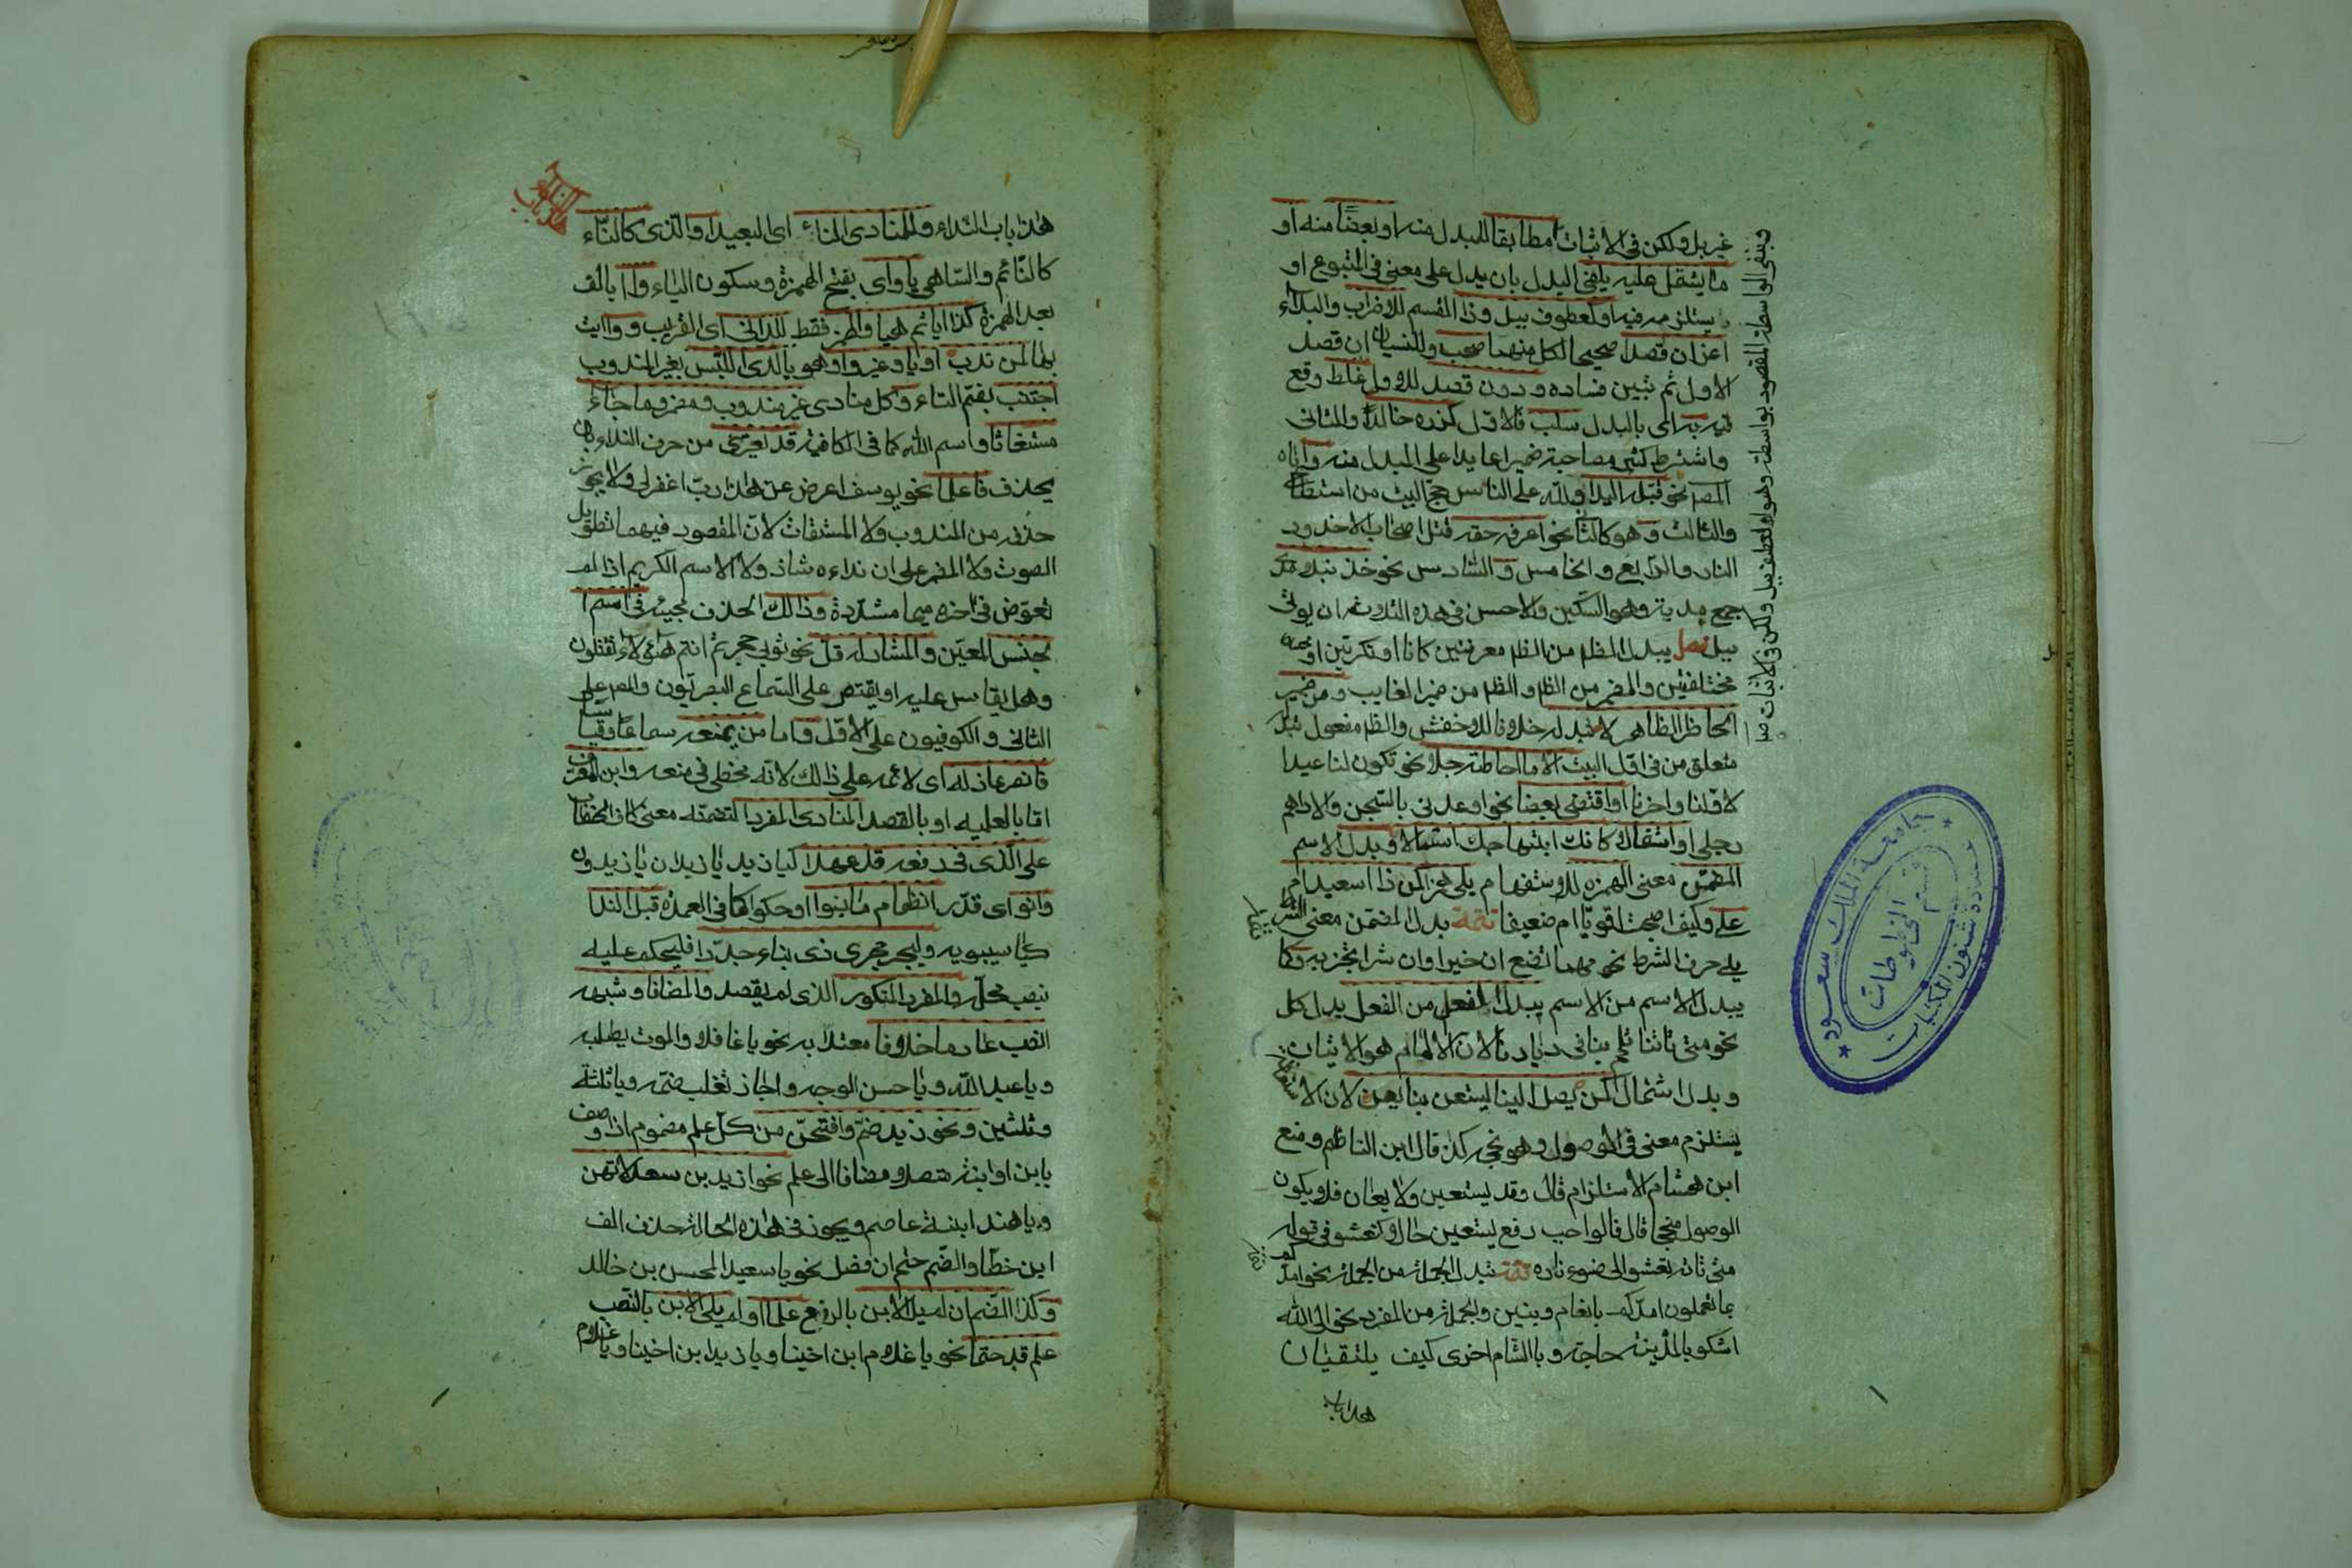 غير بل ولكن في الاثبات مطابقا للمبدل منه او بعضا منه او
ما يشتمل عليه يلفى البدل بان يدل على معنى في المتبوع او
يستلزمه فيه او كمعطوف ببل وذا القسم للاضراب والبداء
اعز ان قصدا صحيحا لكل منهما صحب وللنسيان ان قصل
الاول ثم تبين فساده ودون قصد للاول غلط وقع
فيه به اى بالبدل سلب فالاول كزره خالدا والثانى
واشترط كثير مصاحبة ضميرا عايدا على المبدل منه واباه
المصم نحو قبله اليدا ولله على الناس حج البيت من استطاع
والثالث وهو كالثانى نحو اعرفه حقه قتل اصحاب الاخدود
النار والرابع والخامس والسادس نحو خذ نبلا مدى
جمع مدية وهو السكين والاحسن في هذه الثلاثه ان يوتى
ببل فصل يبدل الظم من الظم معرفتين كانا او نكرتين او
مختلفتين والمضمر من الظم والظم من ضمير الغايب ومن ضمير
الحاظر الظاهر لا تبدله خلافا للاخفش والظم مفعول تبدل
متعلق من في اول البيت الا ما احاطة جلا نحو تكون لنا عيدا
لاولنا واخرنا او اقتضى بعضا نحو اوعدنى بالسجن والاداهم
رجلى او اشتمالا كانك ابتهاجك استمالا وبدل الاسم
المضمن معنى الهمزه للاستفهام يلى همزا كمن ذا اسعيد ام
على وكيف اصبحت اقويا ام ضعيفا تتمة بدل المضمن معنى الشرط
يلى حرف الشرط نحو مهما تصنع ان خيرا وان شرا تجز به وكما
يبدل الاسم من الاسم يبدل الفعل من الفعل بدل كل
نحو متى تاتنا تلمم بنا في ديارنا لان الالمام هو الاتيان
وبدل اشتمال كمن يصل الينا يستعن بنا يعن لان الا
يستلزم معنى في الوصول وهو نجحه كذا قال ابن الناظم ومنع
ابن هشام الاستلزام قال وقد يستعين ولا يعان فلا يكون
الوصول منجحا قال فالواجب رفع يستعين حالا كتعشو في قوله
متى تاته تعشو الى ضوء ناره تتمة تبدل الجملة من الجملة نحو امدكم
بما تعملون امدكم بانعام وبنين والجملة من المفرد نحو الى الله
اشكو بالمدينة حاجة وبالشام اخرى كيف يلتقيان
هذا باب
وبنفى الواسطة المقصود بواسطة وهو العطف ببل ولكن في الاثبات
هذا باب النداء وللمنادى الناء اى البعيد او الذى كالناء
كالنائم والساهى يا واى بفتح الهمزة وسكون الياء وآ بالف
بعد الهمزة كذا ايا ثم هيا والهمز فقط للدانى اى القريب ووا ايت
بها لمن ندب او يا وغير وا وهو يا لدى اللبس بغير المندوب
اجتنب بضم التاء وكل منادى غير مندوب ومضمر وما جاء
مستغاثا واسم الله كما في الكافية قد يعرى من حرف النداء بان
يحذف فاعلما نحو يوسف اعرض عن هذا رب اغفر لى ولا يجوز
حذفه من المندوب ولا المستغاث لان المقصود فيهما تطويل
الصوت ولا المضمر على ان نداءه شاذ ولا الاسم الكريم اذا لم
تعوض في اخره ميما مشددة وذالك الحذف مجيئه في اسم ا
لجنس المعين والمشار له قل نحو ثوبى حجر ثم انتم هؤلاء تقتلون
وهل يقاس عليه او يقتصر على السماع البصريون والمصم على
الثانى والكوفيون على الاول واما من يمنعه سماعا وقياسا
فانصر عاذله اى لائمه على ذالك لانه مخطى في منعه وابن المعرف
اما بالعلميه او بالقصد المنادى المفردا لتضمنه معنى كاف الخطاب
على الذى في رفعه قد عهدا كيا زيد يا زيدان يا زيدون
وانو اى قدر انظمام ما بنوا او حكوا كما في العمده قبل الندا
كيا سيبويه وليجر مجرى ذى بناء جددا فليحكم عليه
بنصب محله والمفرد المنكور الذى لم يقصد والمضافا وشبهه
انصب عادما خلافا معتدا به نحو يا غافلا والموت يطلبه
ويا عبد الله ويا حسن الوجه واجاز ثعلب ضمه ويا ثلثة
وثلثين ونحو زيد ضم وافتحن من كل علم مضموم اذا وصف
بابن او ابنة متصلا مضافا الى علم نحو ازيد بن سعد لا تهن
ويا هند ابنة عاصم ويجوز في هذه الحالة حذف الف
ابن خطا والضم حتم ان فصل نحو يا سعيد المحسن بن خالد
وكذا الضم ان لم يل الابن بالرفع علما او لم يلى الابن بالنصب
علم قد حتما نحو يا غلام ابن اخينا ويا زيد ابن اخينا ويا غلام
جامعة الملك سعود
عمادة شئون المكتبات
قسم المخطوطات